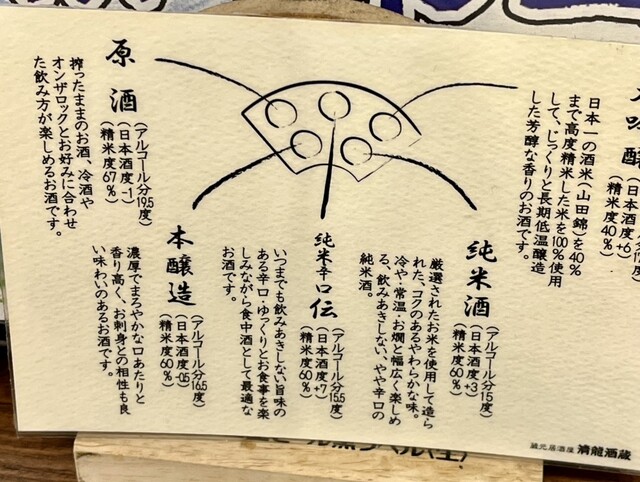 吟醸
日本酒度+6)
精米度40%)
日本一の酒米(山田錦)を40%
まで高度精米した米を100%使用
して、じっくりと長期低温醸造
した芳醇な香りのお酒です。
原酒
(アルコール分19.5度)
(日本酒度-1)
(精米度67%)
搾ったままのお酒、冷酒や
オンザロックとお好みに合わせ
た飲み方が楽しめるお酒です。
純米酒
(アルコール分15度)
(日本酒度+3)
(精米度60%)
厳選されたお米を使用して造ら
れた、コクのあるやわらかな味。
冷や・常温・お燗と幅広く楽しめ
る、飲みあきしない、やや辛口の
純米酒。
純米辛口伝
(アルコール分15.5度)
(日本酒度+7)
(精米度60%)
いつまでも飲みあきしない旨味の
ある辛口・ゆっくりとお食事を楽
しみながら食中酒として最適な
お酒です。
本醸造
(アルコール分16.5度)
(日本酒度-0.5)
(精米度60%)
濃厚でまろやかな口あたりと
香り高く、お刺身との相性も良
い味わいのあるお酒です。
蔵元居酒屋 清龍酒蔵